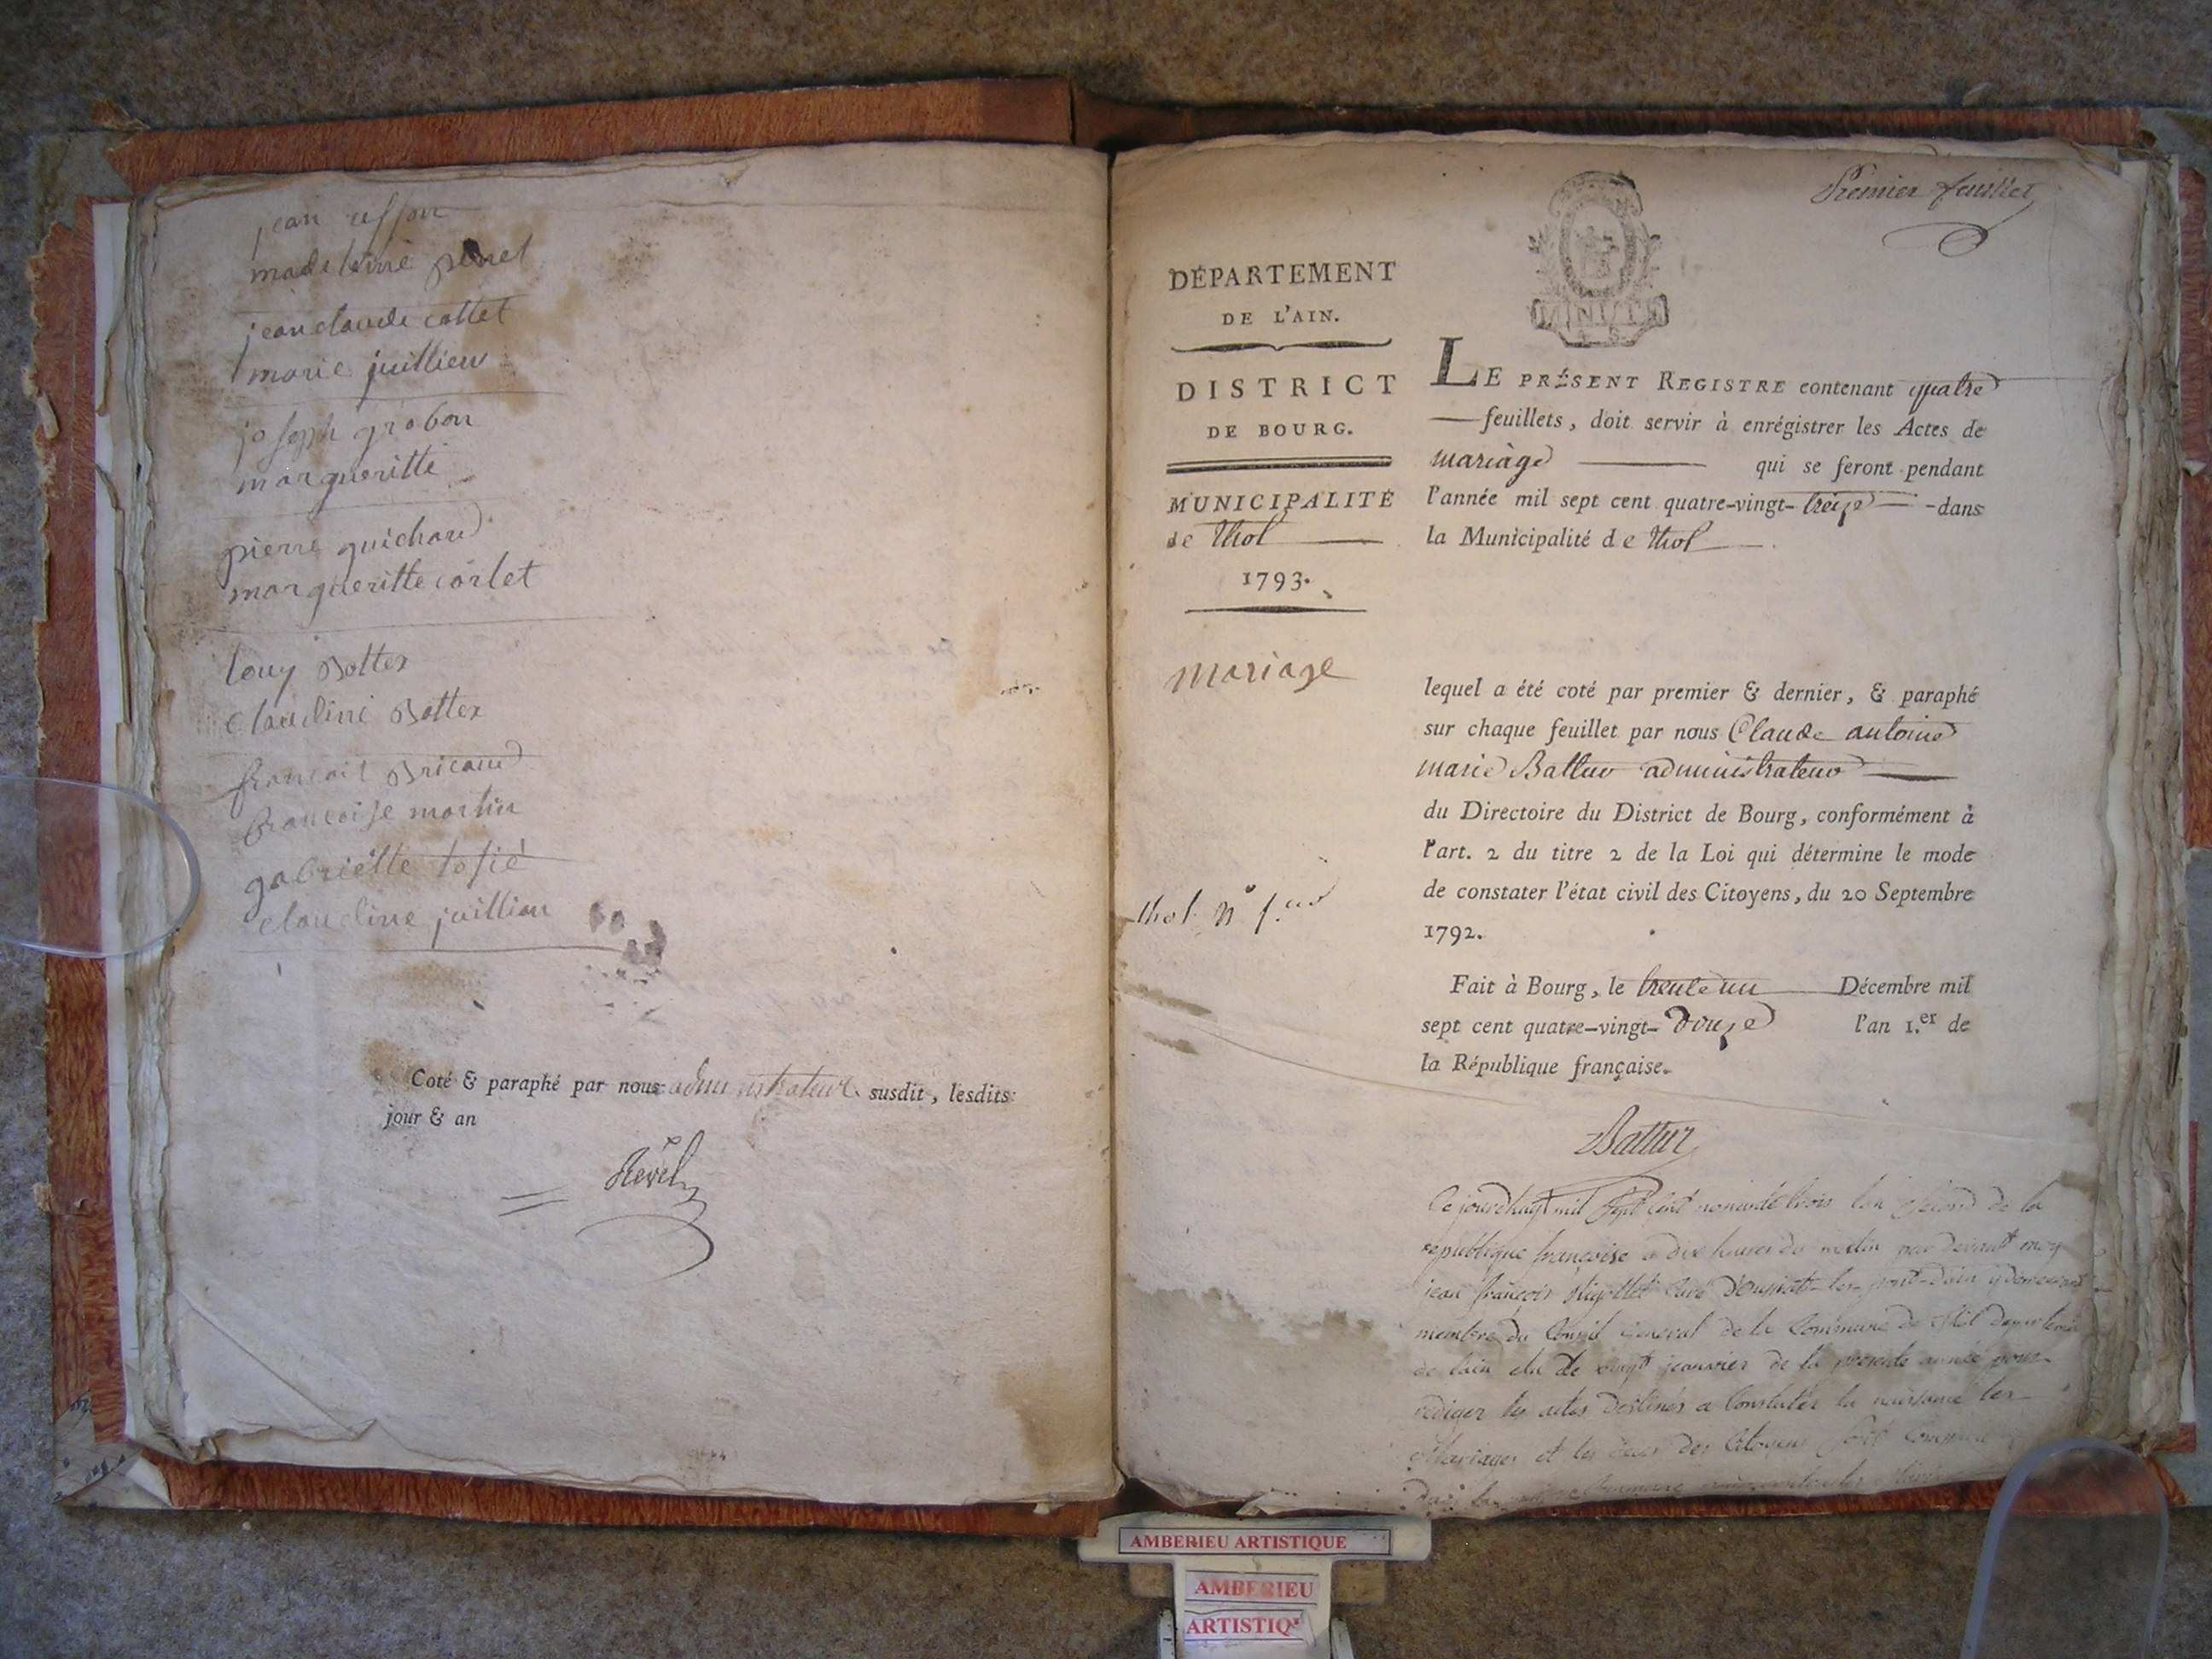 jean
madeleine
jean claude collet
marie juillien
joseph grobon
margueritte
pierre guichard
margueritte corlet
louy Bottex
claudine Bottex
francois Bricaud
francoise martin
gabrielle
claudine juillian
Coté & paraphé par nous administrateur susdit, lesdits
jour & an
Revel
Premier feuillet
DÉPARTEMENT
DE L'AIN.
DISTRICT
DE BOURG.
MUNICIPALITÉ
de Thol
1793.
mariage
thol n° 1.er
LE PRÉSENT REGISTRE contenant quatre
feuillets, doit servir à enrégistrer les Actes de
mariage qui se feront pendant
l'année mil sept cent quatre-vingt-treize dans
la Municipalité de Thol.
lequel a été coté par premier & dernier, & paraphé
sur chaque feuillet par nous Claude antoine
marie Battur administrateur
du Directoire du District de Bourg, conformément à
l'art. 2 du titre 2 de la Loi qui détermine le mode
de constater l'état civil des Citoyens, du 20 Septembre
1792.
Fait à Bourg, le trente un Décembre mil
sept cent quatre-vingt-douze l'an 1.er de
la République française.
Battur
Ce jourdhuy mil sept cent nonante trois l'an second de la
republique françoise a dix heures du matin par devant moy
jean françois curé d'oussiat-les-pont-d'ain y demeurant
membre du Conseil general de la Commune de
de l'ain elu le vingt jeanvier de la presente année pour
rediger les actes destinés a Constater la naissance les
Mariages et les decés des Citoyens
AMBERIEU ARTISTIQUE
AMBERIEU
ARTISTIQ